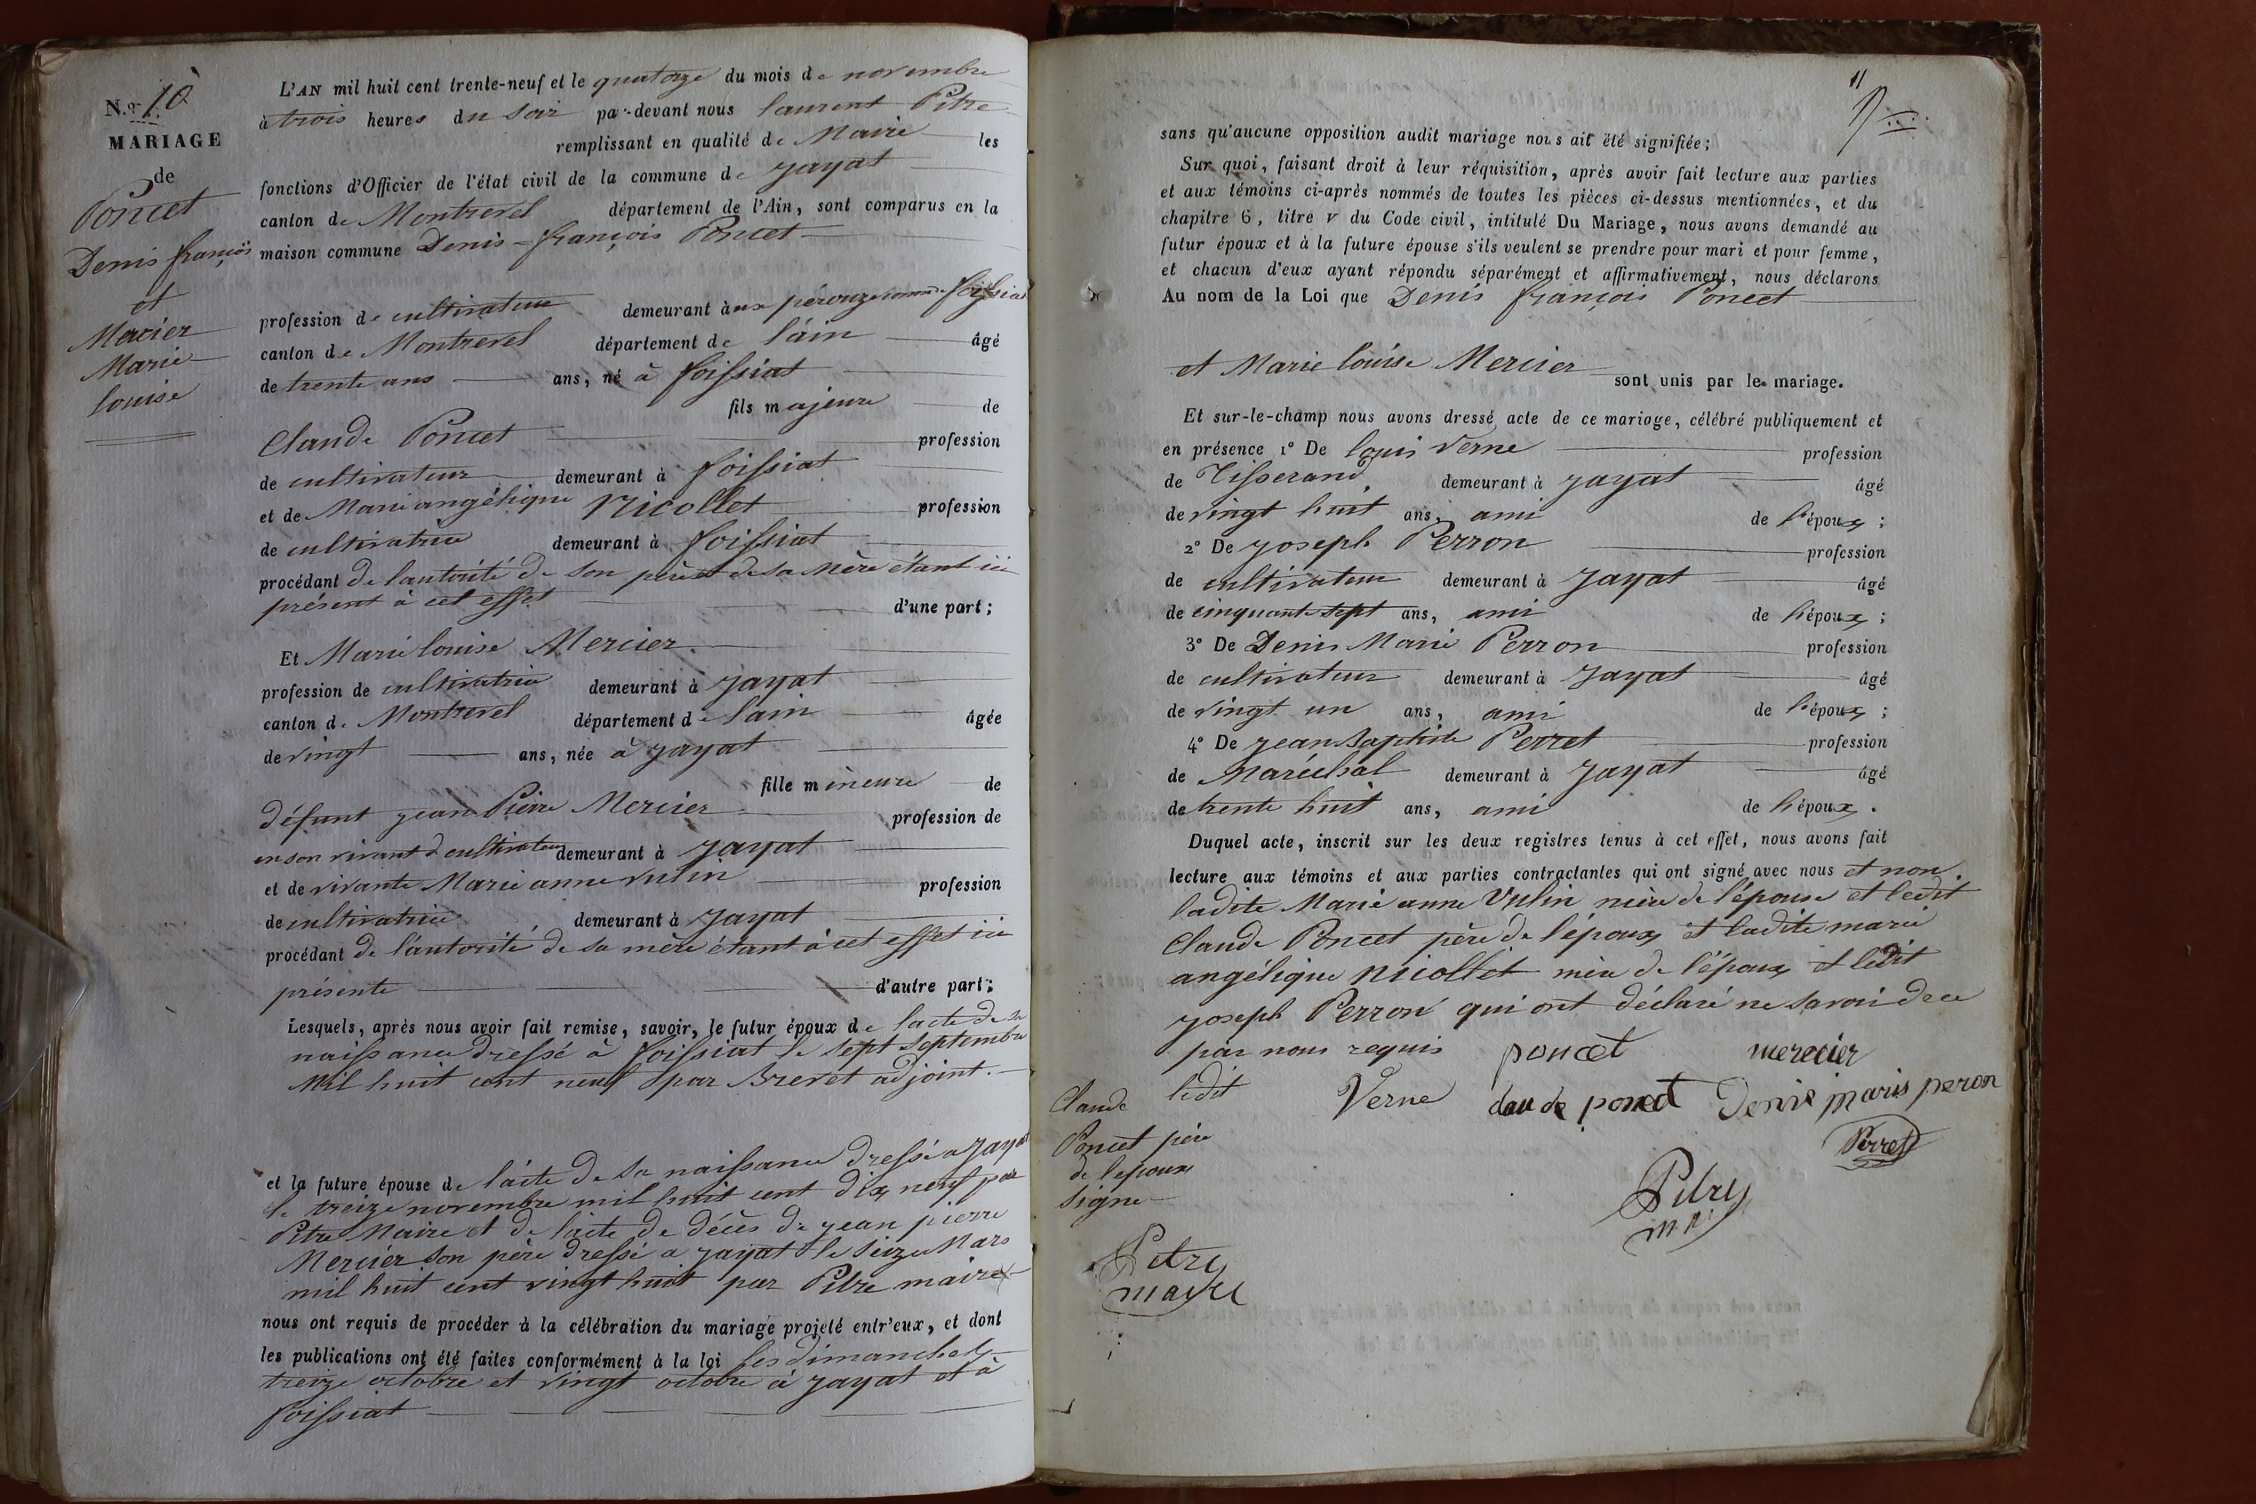 N.º 10
MARIAGE
de
Poncet
Denis françois
et
Mercier
Marie
louise
L'AN mil huit cent trente-neuf et le quatorze du mois de novembre
à trois heures du soir par-devant nous laurent Pitre
remplissant en qualité de Maire les
fonctions d'Officier de l'état civil de la commune de Jayat
canton de Montrevel département de l'Ain, sont comparus en la
maison commune Denis-françois Poncet
profession de cultivateur demeurant à foissiat
canton de Montrevel département de l'ain âgé
de trente ans ans, né à foissiat
fils majeure de
Claude Poncet profession
de cultivateur demeurant à foissiat
et de Marie angélique Nicollet profession
de cultivatrice demeurant à foissiat
procédant de l'autorité de son père et de sa Mère étant ici
présent à cet effet d'une part;
Et Marie louise Mercier
profession de cultivatrice demeurant à Jayat
canton de Montrevel département de lain âgée
de vingt ans, née à Jayat
fille mineure de
défunt jean Pierre Mercier profession de
en son vivant de cultivateur demeurant à Jayat
et de vivante Marie anne vulin profession
de cultivatrice demeurant à Jayat
procédant de l'autorité de sa mère étant à cet effet ici
présente d'autre part;
Lesquels, après nous avoir fait remise, savoir, le futur époux de lacte de sa
naissance dressé à foissiat le sept septembre
Mil huit cent neuf par Brevet adjoint.
et la future épouse de l'acte de sa naissance dressé a Jayat
le treize novembre mil huit cent dix neuf par
Pitre Maire et de lacte de décès de jean pierre
Mercier son père dressé a jayat le seize Mars
mil huit cent vingt huit par Pitre maire
nous ont requis de procéder à la célébration du mariage projeté entr'eux, et dont
les publications ont été faites conformément à la loi les dimanches
treize octobre et vingt octobre à jayat et à
foissiat
11
sans qu'aucune opposition audit mariage nous ait été signifiée;
Sur quoi, faisant droit à leur réquisition, après avoir fait lecture aux parties
et aux témoins ci-après nommés de toutes les pièces ci-dessus mentionnées, et du
chapitre 6, titre V du Code civil, intitulé Du Mariage, nous avons demandé au
futur époux et à la future épouse s'ils veulent se prendre pour mari et pour femme,
et chacun d'eux ayant répondu séparément et affirmativement, nous déclarons
Au nom de la Loi que Denis françois Poncet
et Marie louise Mercier sont unis par le mariage.
Et sur-le-champ nous avons dressé acte de ce mariage, célébré publiquement et
en présence 1º De louis Verne profession
de Tisserand demeurant à Jayat âgé
de vingt huit ans, ami de l'époux;
2º De joseph Perron profession
de cultivateur demeurant à Jayat âgé
de cinquante sept ans, ami de l'époux;
3º De Denis Marie Perron profession
de cultivateur demeurant à Jayat âgé
de vingt un ans, ami de l'époux;
4º De jean Baptiste Perret profession
de Maréchal demeurant à Jayat âgé
de trente huit ans, ami de l'époux.
Duquel acte, inscrit sur les deux registres tenus à cet effet, nous avons fait
lecture aux témoins et aux parties contractantes qui ont signé avec nous et non
ladite Marie anne Vulin mère de l'épouse et ledit
Claude Poncet père de l'époux et ladite marie
angélique Nicollet mère de l'époux et ledit
joseph Perron qui ont déclaré ne savoir de ce
par nous requis poncet mercier
ledit Verne claude poncet Denis marie peron
Claude
Poncet père
de lepoux
signe
Perret
Pitre
mre
Pitre
maire